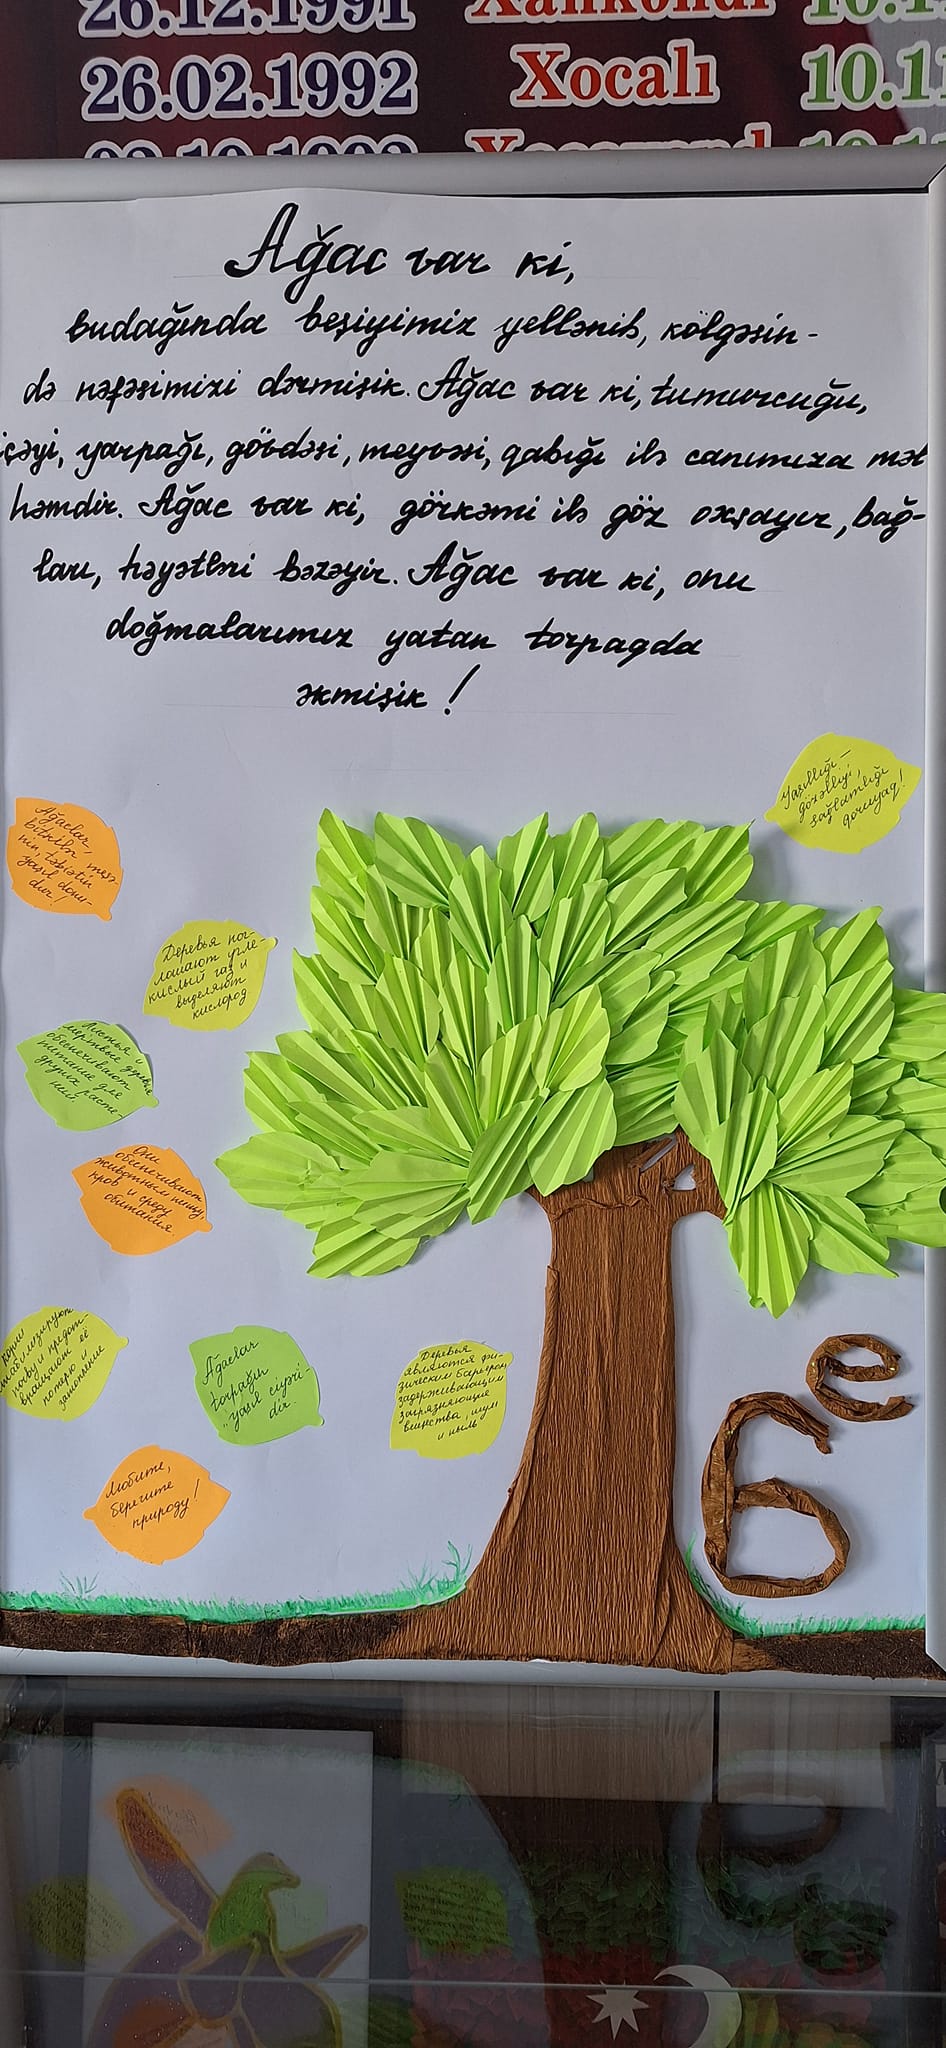 26.12.1991 Xankəndi
26.02.1992 Xocalı 10.1
02.10.1992 Xocavənd
Ağac var ki,
budağında beşiyimiz yellənib, kölgəsin-
də nəfəsimizi dərmişik. Ağac var ki, tumurcuğu,
içəyi, yarpağı, gövdəsi, meyvəsi, qabığı ilə canımıza məl
həmdir. Ağac var ki, görkəmi ilə göz oxşayır, bağ-
ları, həyətləri bəzəyir. Ağac var ki, onu
doğmalarımız yatan torpaqda
əkmişik!
Yaşıllığı –
gözəlliyi,
sağlamlığı
qoruyaq!
Ağaclar,
bitkilər meşə-
nin, təbiətin
yaşıl donu-
dur!
Деревья пог-
лощают угле-
кислый газ и
выделяют
кислород
Листья и
мертвые деревья
обеспечивают
питание для
других расте-
ний.
Они
обеспечивают
животным пищу,
кров и среду
обитания.
Корни
стабилизируют
почву и предот-
вращают её
потерю и
затопление
Ağaclar
torpağın
"yaşıl ciyəri-
dir.
Деревья
являются фи-
зическим барьером
задерживающим
загрязняющие
вещества шум
и пыль
Любите,
берегите
природу!
6 e